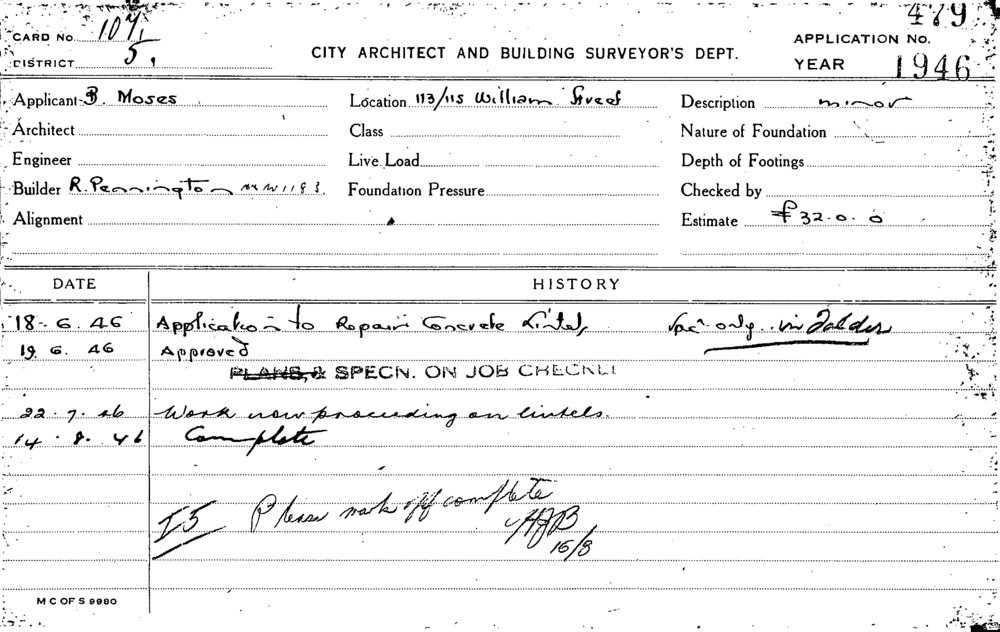 CARD No. 107/1 479
DISTRICT 5, CITY ARCHITECT AND BUILDING SURVEYOR'S DEPT. APPLICATION No.
YEAR 1946
Applicant B. Moses Location 113/115 William Street Description minor
Architect Class Nature of Foundation
Engineer Live Load Depth of Footings
Builder R. Pennington MW1193 Foundation Pressure Checked by
Alignment Estimate £32.0.0
DATE HISTORY
18.6.46 Application to Repair Concrete Lintels Spec only in Folder
19.6.46 Approved
PLANS, & SPECN. ON JOB CHECKE
22.7.46 Work now proceeding on lintels.
14.8.46 Complete
I5 Please mark off complete
HJB
15/8
M C OF S 9980